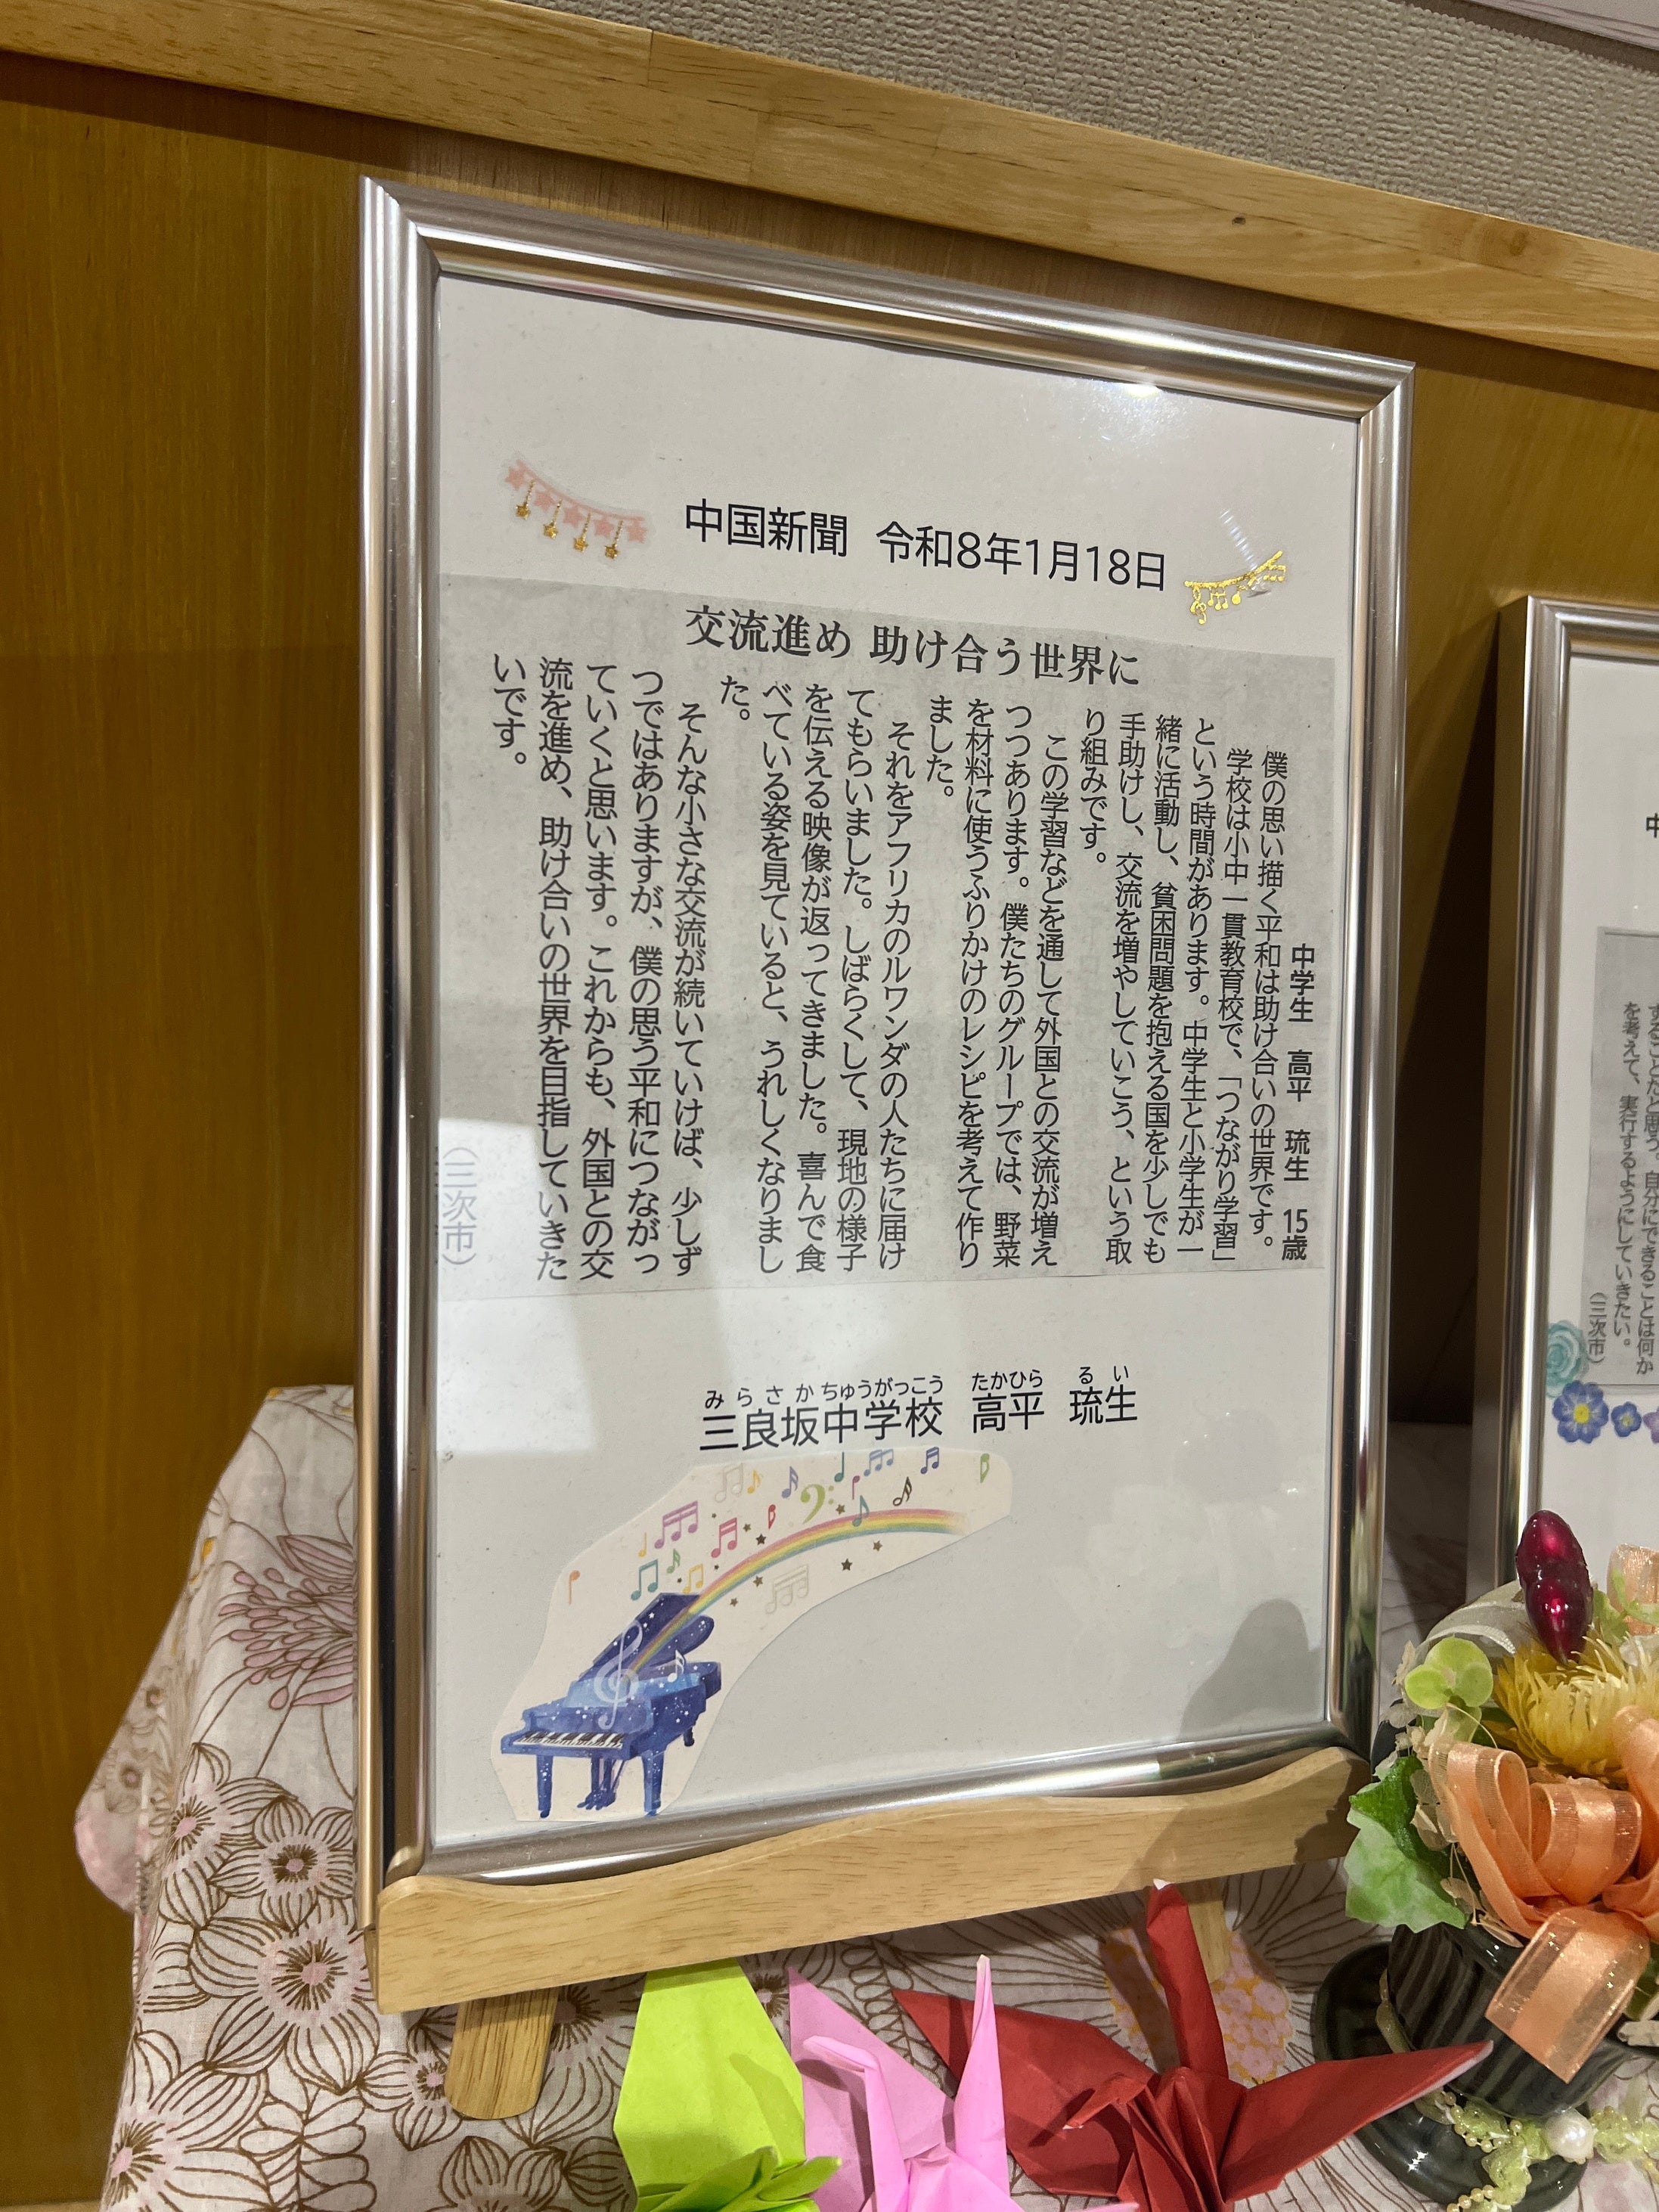 中国新聞 令和8年1月18日
交流進め 助け合う世界に
中学生 高平 琉生 15歳
僕の思い描く平和は助け合いの世界です。
学校は小中一貫教育校で、「つながり学習」
という時間があります。中学生と小学生が一
緒に活動し、貧困問題を抱える国を少しでも
手助けし、交流を増やしていこう、という取
り組みです。
この学習などを通して外国との交流が増え
つつあります。僕たちのグループでは、野菜
を材料に使うふりかけのレシピを考えて作り
ました。
それをアフリカのルワンダの人たちに届け
てもらいました。しばらくして、現地の様子
を伝える映像が返ってきました。喜んで食
べている姿を見ていると、うれしくなりまし
た。
そんな小さな交流が続いていけば、少しず
つではありますが、僕の思う平和につながっ
ていくと思います。これからも、外国との交
流を進め、助け合いの世界を目指していきた
いです。
(三次市)
みらさかちゅうがっこう たかひら るい
三良坂中学校 高平 琉生
中
することだと思う。自分にできることは何か
を考えて、実行するようにしていきたい。
(三次市)